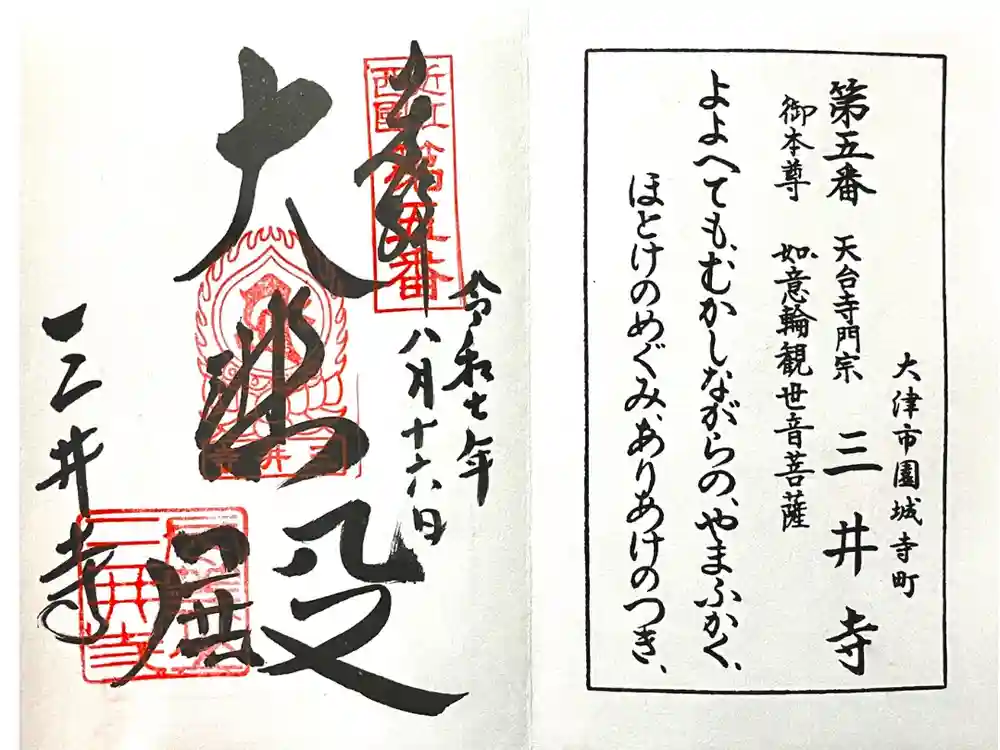 大津市園城寺町
第五番 天台寺門宗 三井寺
御本尊 如意輪観世音菩薩
よよへても、むかしながらの、やまふかく、
ほとけのめぐみ、ありあけのつき、
奉拝
近江
西國
第五番
令和七年
八月十六日
大悲殿
三井寺
三井寺
三井寺